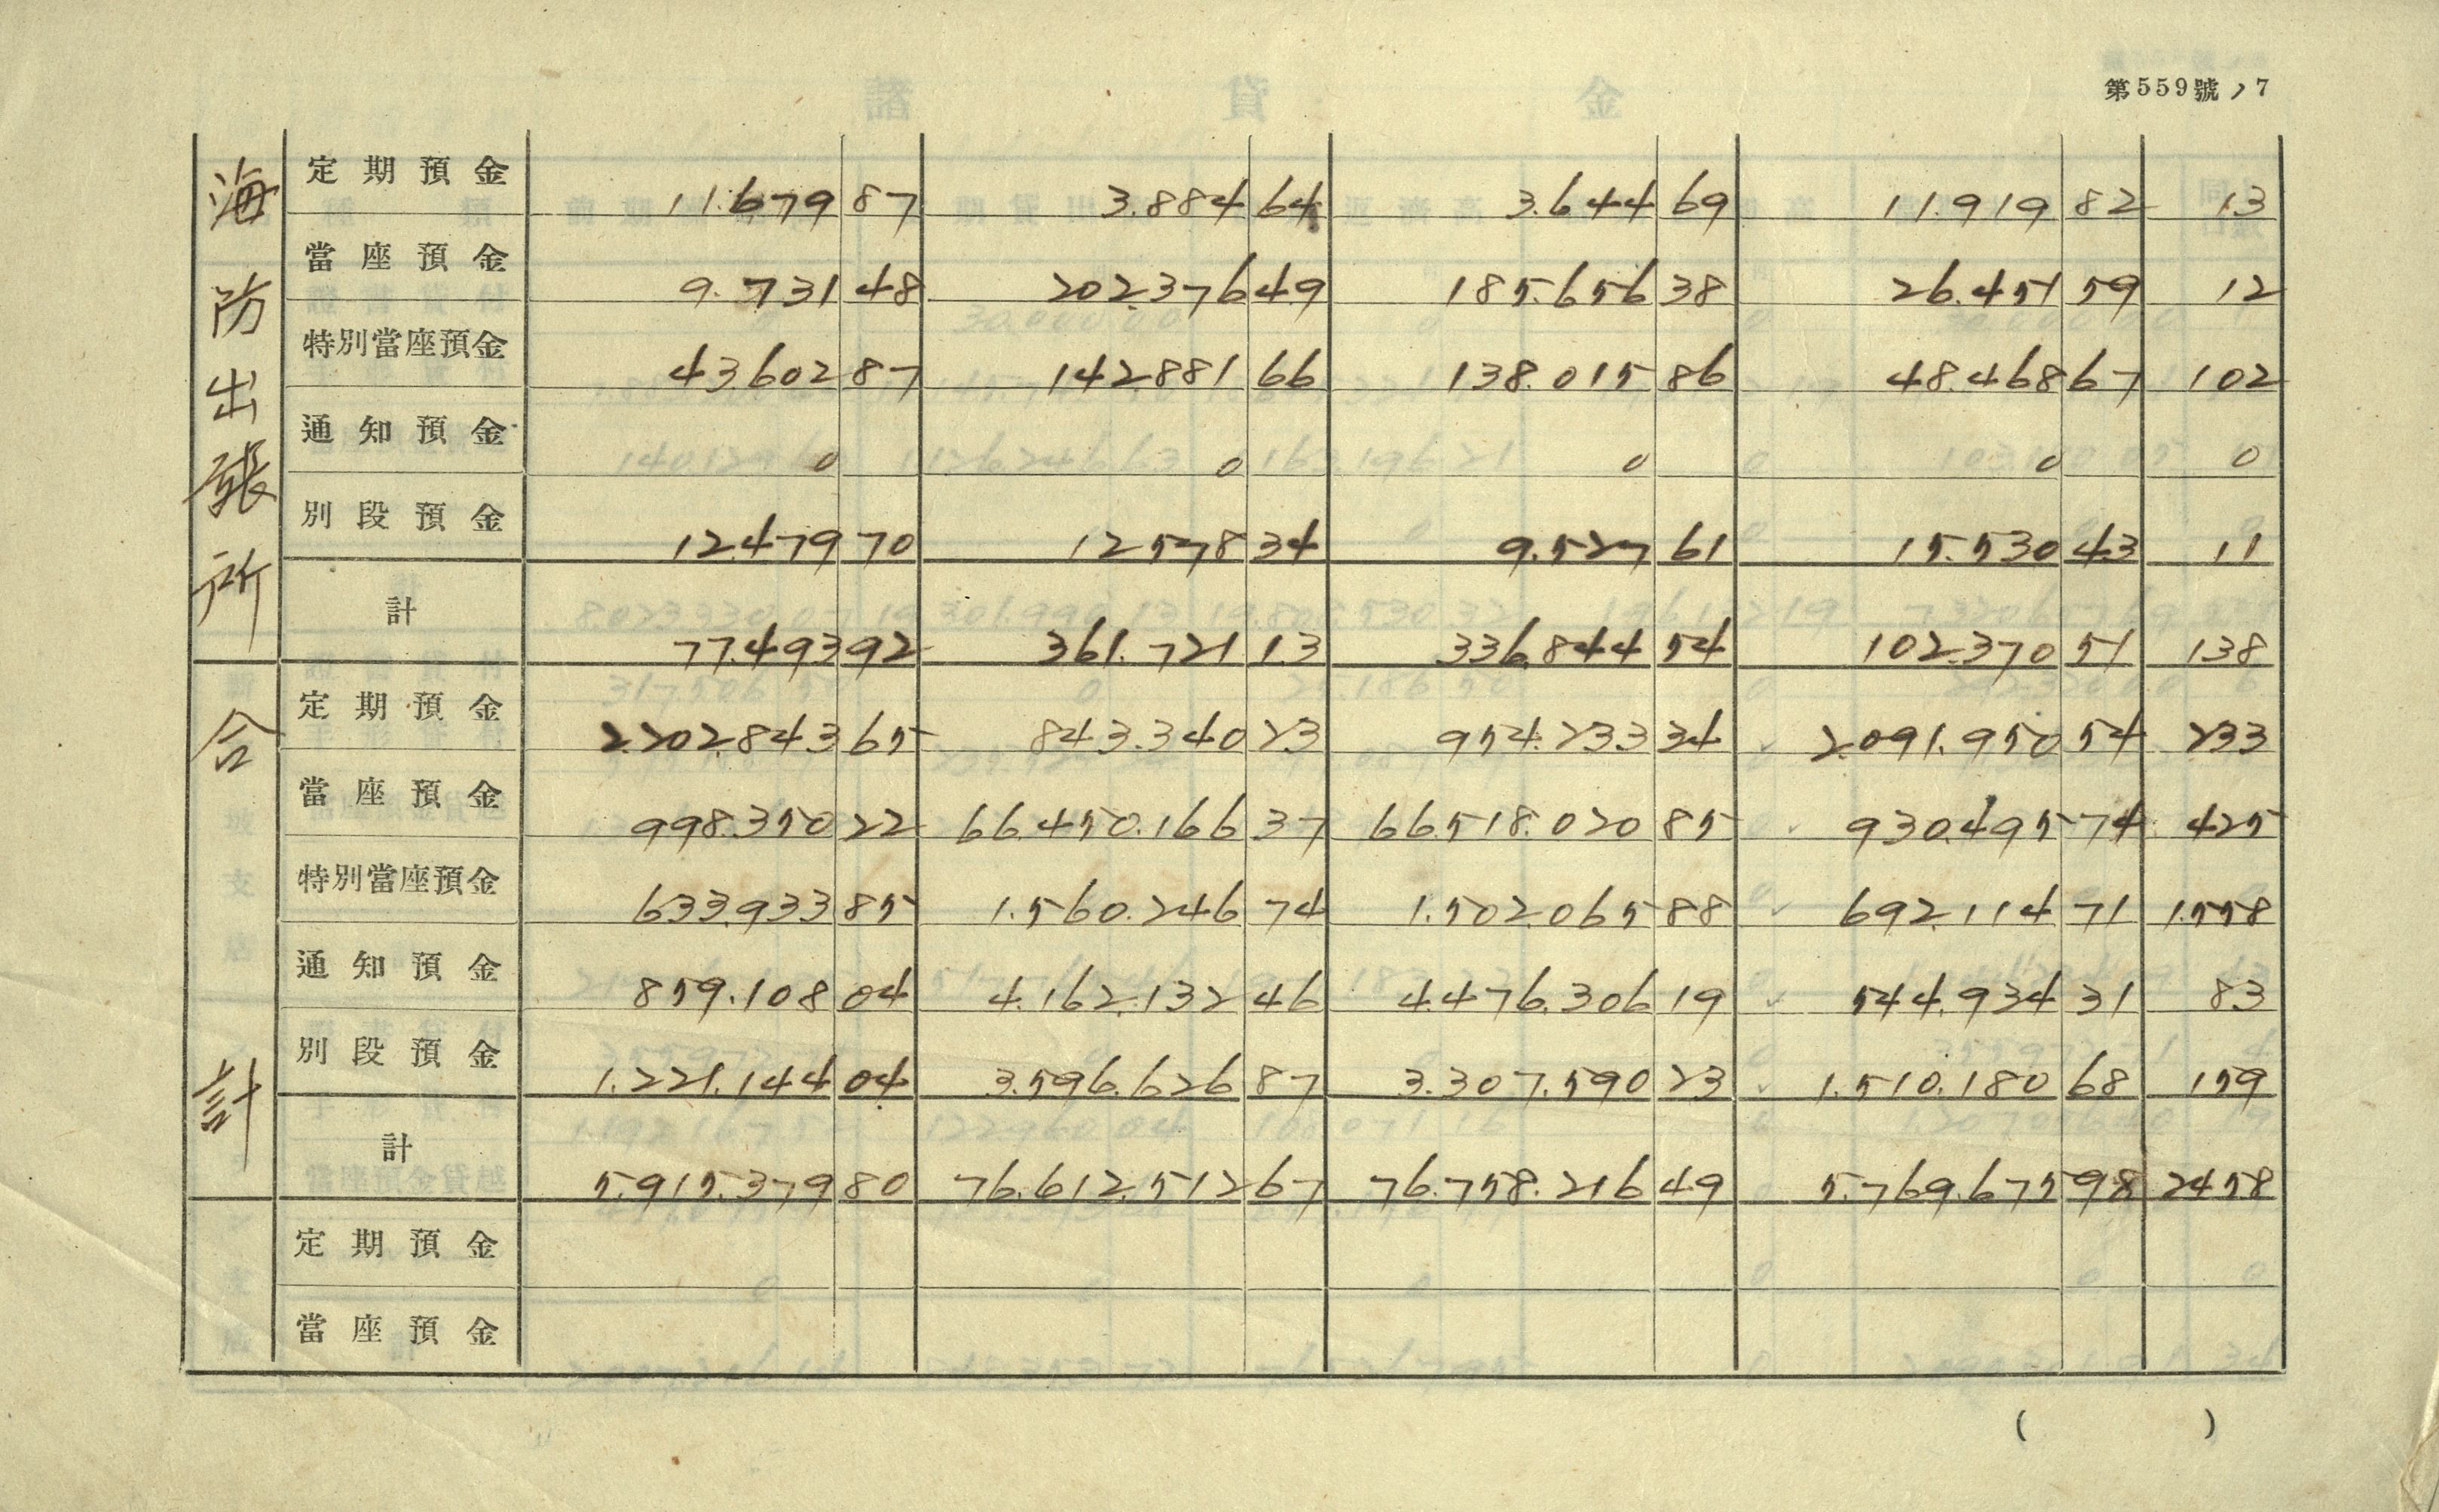 第559號ノ7
海防出張所
定期預金 11.679 87 3.884 64 3.644 69 11.919 82 13
當座預金 9.731 48 202.376 49 185.656 38 26.451 59 12
特別當座預金 43.602 87 142.881 66 138.015 86 48.468 67 102
通知預金 0 0 0 0 0
別段預金 12.479 70 12.578 34 9.527 61 15.530 43 11
計 77.493 92 361.721 13 336.844 54 102.370 51 138
合計
定期預金 2.202.843 65 843.340 23 954.233 34 2.091.950 54 233
當座預金 998.350 22 66.450.166 37 66.518.020 85 930.495 74 425
特別當座預金 633.933 85 1.560.246 74 1.502.065 88 692.114 71 1.558
通知預金 859.108 04 4.162.132 46 4.476.306 19 544.934 31 83
別段預金 1.221.144 04 3.596.626 87 3.307.590 23 1.510.180 68 159
計 5.915.379 80 76.612.512 67 76.758.216 49 5.769.675 98 2458
定期預金
當座預金
( )